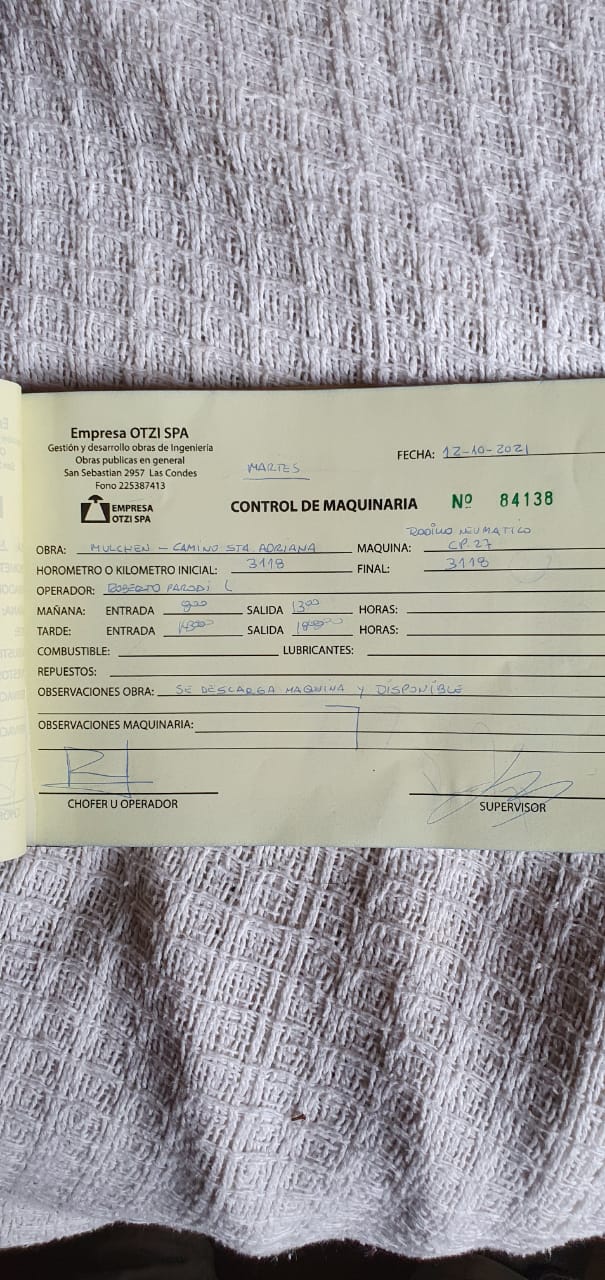 Empresa OTZI SPA
Gestión y desarrollo obras de Ingeniería
Obras publicas en general
San Sebastian 2957 Las Condes
Fono 225387413
EMPRESA
OTZI SPA
MARTES
FECHA: 12-10-2021
CONTROL DE MAQUINARIA Nº 84138
RODILLO NEUMATICO
OBRA: MULCHEN - CAMINO STA. ADRIANA MAQUINA: CP. 27
HOROMETRO O KILOMETRO INICIAL: 3118 FINAL: 3118
OPERADOR: ROBERTO PARODI L
MAÑANA: ENTRADA 800 SALIDA 1300 HORAS:
TARDE: ENTRADA SALIDA HORAS:
COMBUSTIBLE: LUBRICANTES:
REPUESTOS:
OBSERVACIONES OBRA: SE DESCARGA MAQUINA Y DISPONIBLE
OBSERVACIONES MAQUINARIA:
CHOFER U OPERADOR SUPERVISOR